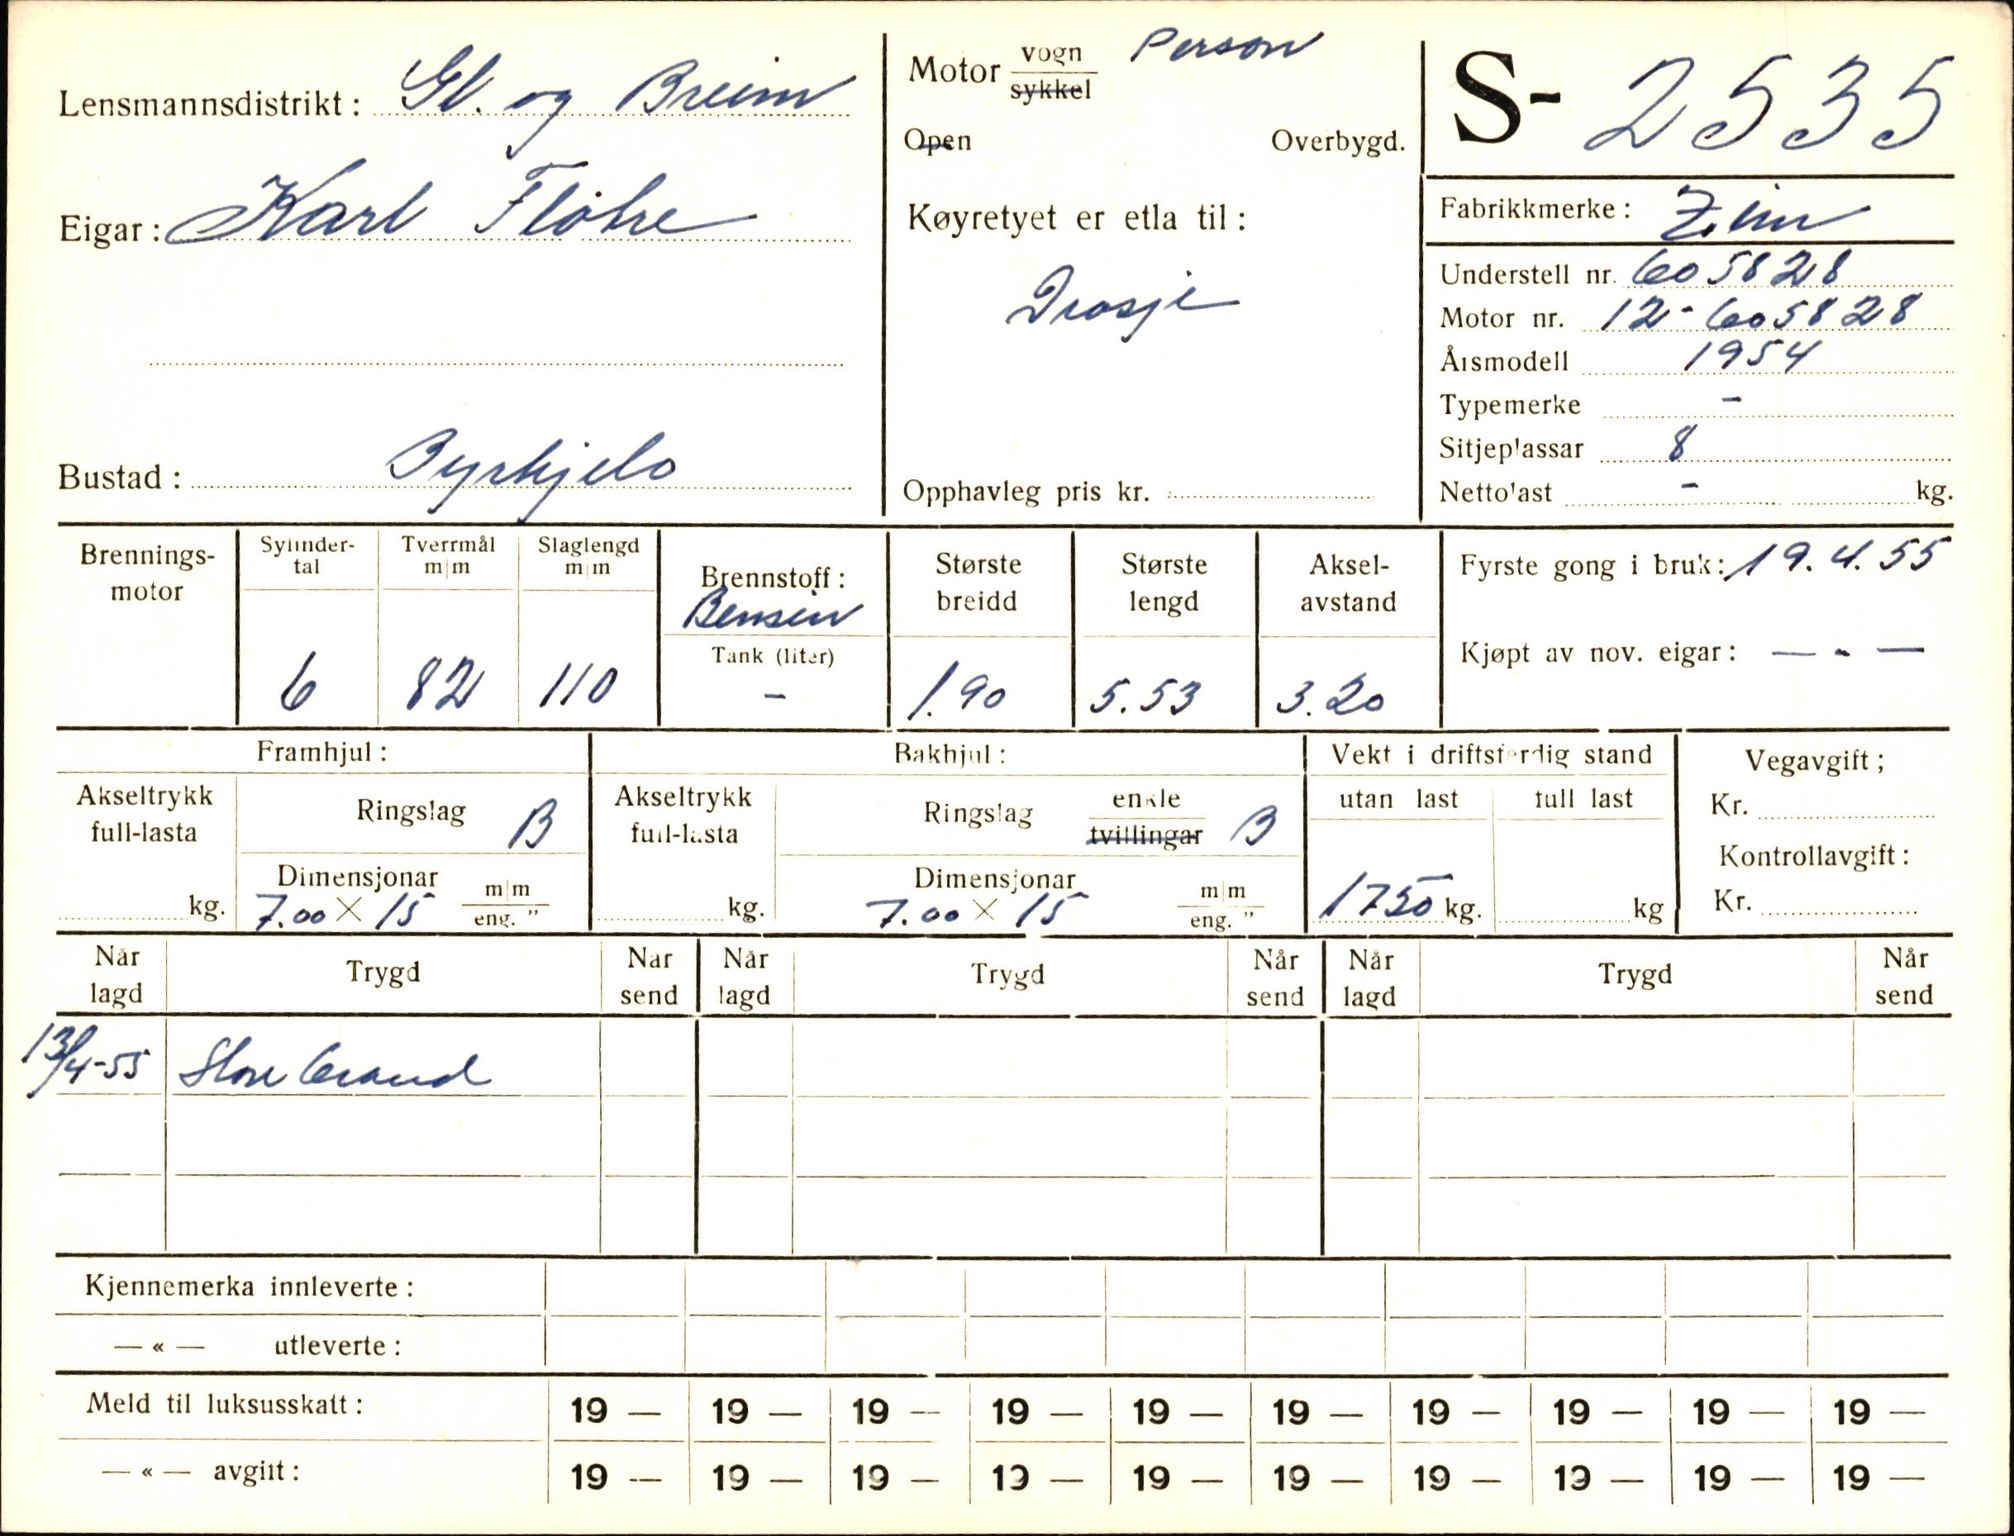 Lensmannsdistrikt: Gl. og Breim
Eigar: Karl Fløtre
Bustad: Byrkjelo
Motor vogn Person
sykkel
Open Overbygd.
Køyretyet er etla til:
Drosje
Opphavleg pris kr.
S- 2535
Fabrikkmerke: Zim
Understell nr. 605828
Motor nr. 12-605828
Årsmodell 1954
Typemerke -
Sitjeplassar 8
Nettolast - kg.
Brennings-
motor
Sylinder-
tal
6
Tverrmål
m|m
82
Slaglengd
m|m
110
Brennstoff:
Bensin
Tank (liter)
-
Største
breidd
1.90
Største
lengd
5.53
Aksel-
avstand
3.20
Fyrste gong i bruk: 19.4.55
Kjøpt av nov. eigar: — - —
Framhjul:
Akseltrykk
full-lasta
kg.
Ringslag B
Dimensjonar m|m
7.00 X 15 eng. "
Bakhjul:
Akseltrykk
full-lasta
kg.
Ringslag enkle B
tvillingar
Dimensjonar m|m
7.00 X 15 eng. "
Vekt i driftsferdig stand
utan last full last
1750 kg. kg
Vegavgift;
Kr.
Kontrollavgift:
Kr.
Når
lagd
Trygd
Når
send
Når
lagd
Trygd
Når
send
Når
lagd
Trygd
Når
send
13/4-55 Store Brand
Kjennemerka innleverte:
— « — utleverte:
Meld til luksusskatt: 19 — 19 — 19 — 19 — 19 — 19 — 19 — 19 — 19 — 19 —
— « — avgift: 19 — 19 — 19 — 19 — 19 — 19 — 19 — 19 — 19 — 19 —